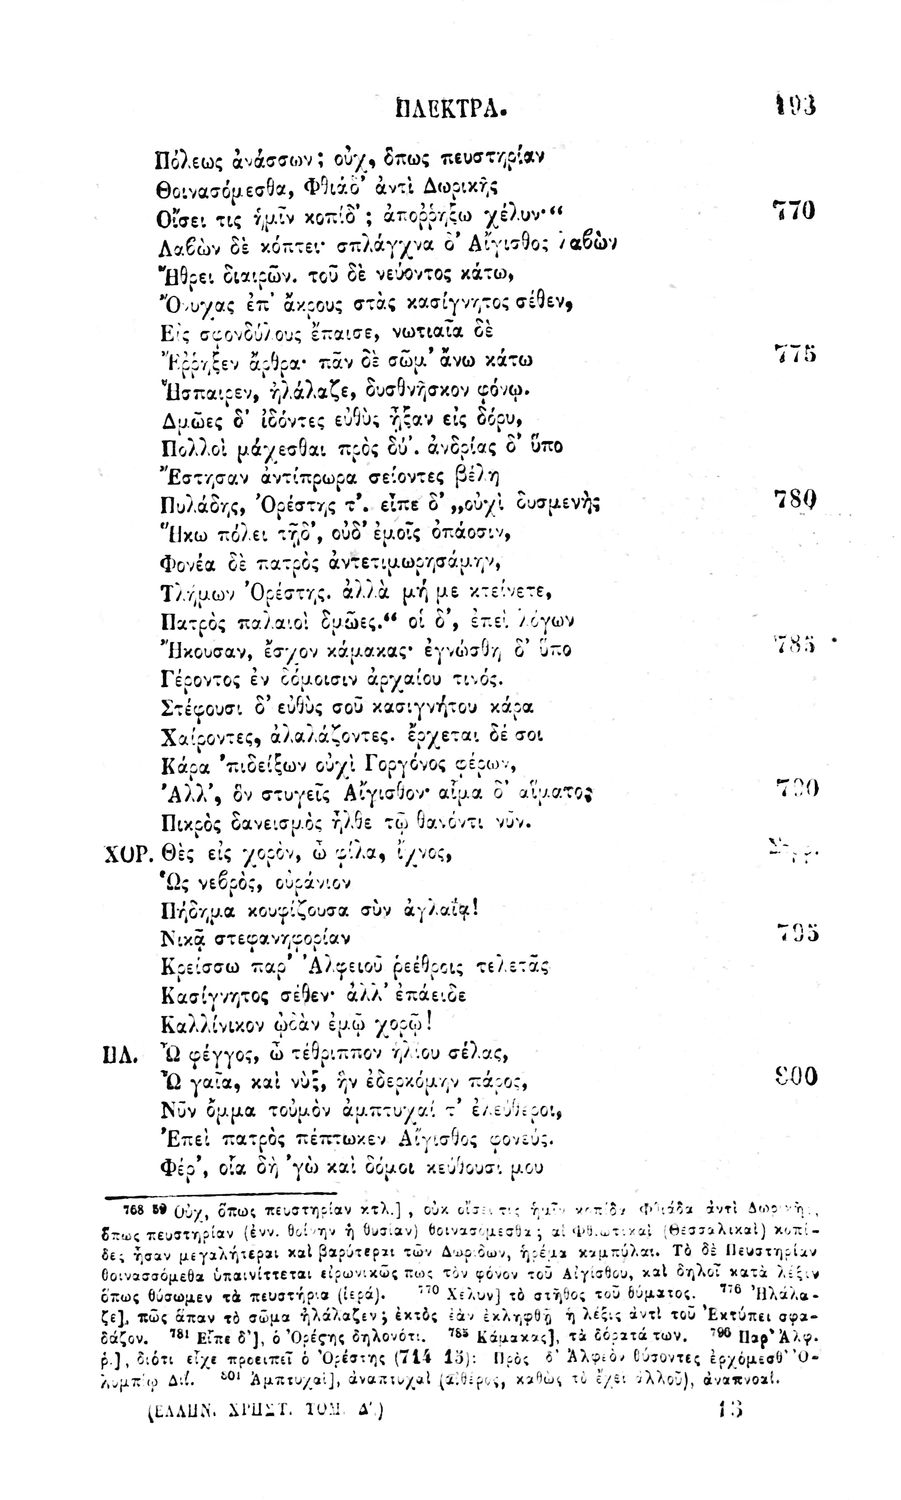 ΗΛΕΚΤΡΑ. 193
Πόλεως ἀνάσσων; οὐχ, ὅπως πευστηρίαν
Θοινασόμεσθα, Φθιάδ᾽ ἀντὶ Δωρικῆς
Οἴσει τις ἡμῖν κοπίδ᾽; ἀποῤῥήξω χέλυν·“ 770
Λαβὼν δὲ κόπτει· σπλάγχνα δ᾽ Αἴγισθος λαβὼν
Ἤθρει διαιρῶν. τοῦ δὲ νεύοντος κάτω,
Ὄνυχας ἐπ᾽ ἄκρους στὰς κασίγνητος σέθεν,
Εἰς σφονδύλους ἔπαισε, νωτιαῖα δὲ
Ἔῤῥηξεν ἄρθρα· πᾶν δὲ σῶμ᾽ ἄνω κάτω 775
Ἤσπαιρεν, ἠλάλαζε, δυσθνῆσκον φόνῳ.
Δμῶες δ᾽ ἰδόντες εὐθὺς ᾖξαν εἰς δόρυ,
Πολλοὶ μάχεσθαι πρὸς δύ᾽. ἀνδρίας δ᾽ ὕπο
Ἔστησαν ἀντίπρωρα σείοντες βέλη
Πυλάδης, Ὀρέστης τ᾽. εἶπε δ᾽ „οὐχὶ δυσμενὴς 780
Ἥκω πόλει τῇδ᾽, οὐδ᾽ ἐμοῖς ὀπάοσιν,
Φονέα δὲ πατρὸς ἀντετιμωρησάμην,
Τλήμων Ὀρέστης. ἀλλὰ μή με κτείνετε,
Πατρὸς παλαιοὶ δμῶες.“ οἱ δ᾽, ἐπεὶ λόγων
Ἤκουσαν, ἔσχον κάμακας· ἐγνώσθη δ᾽ ὕπο 785
Γέροντος ἐν δόμοισιν ἀρχαίου τινός.
Στέφουσι δ᾽ εὐθὺς σοῦ κασιγνήτου κάρα
Χαίροντες, ἀλαλάζοντες. ἔρχεται δέ σοι
Κάρα ᾽πιδείξων οὐχὶ Γοργόνος φέρων,
Ἀλλ᾽, ὃν στυγεῖς Αἴγισθον· αἷμα δ᾽ αἵματος 790
Πικρὸς δανεισμὸς ἦλθε τῷ θανόντι νῦν.
ΧΟΡ. Θὲς εἰς χορὸν, ὦ φίλα, ἴχνος, Στρ.
Ὡς νεβρὸς, οὐράνιον
Πήδημα κουφίζουσα σὺν ἀγλαΐᾳ!
Νικᾷ στεφανηφορίαν 795
Κρείσσω παρ᾽ Ἀλφειοῦ ῥεέθροις τελετᾶς
Κασίγνητος σέθεν· ἀλλ᾽ ἐπάειδε
Καλλίνικον ᾠδὰν ἐμῷ χορῷ!
ΗΛ. Ὦ φέγγος, ὦ τέθριππον ἡλίου σέλας,
Ὦ γαῖα, καὶ νὺξ, ἣν ἐδερκόμην πάρος, 800
Νῦν ὄμμα τοὐμὸν ἀμπτυχαί τ᾽ ἐλεύθεροι,
Ἐπεὶ πατρὸς πέπτωκεν Αἴγισθος φονεύς.
Φέρ᾽, οἷα δὴ ᾽γὼ καὶ δόμοι κεύθουσί μου
768 59 Οὐχ, ὅπως πευστηρίαν κτλ.], οὐκ οἴσει τις ἡμῖν κοπίδα Φθιάδα ἀντὶ Δωρικῆς,
ὅπως πευστηρίαν (ἐνν. θοίνην ἢ θυσίαν) θοινασόμεσθα; αἱ Φθιωτικαὶ (Θεσσαλικαὶ) κοπί-
δες ἦσαν μεγαλήτεραι καὶ βαρύτεραι τῶν Δωρίδων, ἠρέμα καμπύλαι. Τὸ δὲ Πευστηρίαν
θοινασσόμεθα ὑπαινίττεται εἰρωνικῶς πως τὸν φόνον τοῦ Αἰγίσθου, καὶ δηλοῖ κατὰ λέξιν
ὅπως θύσωμεν τὰ πευστήρια (ἱερά). 770 Χελυν] τὸ στῆθος τοῦ θύματος. 776 Ἠλάλα-
ζε], πῶς ἅπαν τὸ σῶμα ἠλάλαζεν; ἐκτὸς ἐὰν ἐκληφθῇ ἡ λέξις ἀντὶ τοῦ Ἐκτύπει σφα-
δάζον. 781 Εἶπε δ᾽], ὁ Ὀρέστης δηλονότι. 785 Κάμακας], τὰ δόρατά των. 796 Παρ᾽ Ἀλφ.
ῥ.], διότι εἶχε προειπεῖ ὁ Ὀρέστης (714 15): Πρὸς δ᾽ Ἀλφεὸν θύσοντες ἐρχόμεσθ᾽ Ὀ-
λυμπίῳ Διΐ. 801 Ἀμπτυχαὶ], ἀναπτυχαὶ (αἰθέρος, καθὼς τὸ ἔχει ἀλλοῦ), ἀναπνοαί.
(ΕΛΛΗΝ. ΧΡΗΣΤ. ΤΟΜ. Δ᾽.) 13